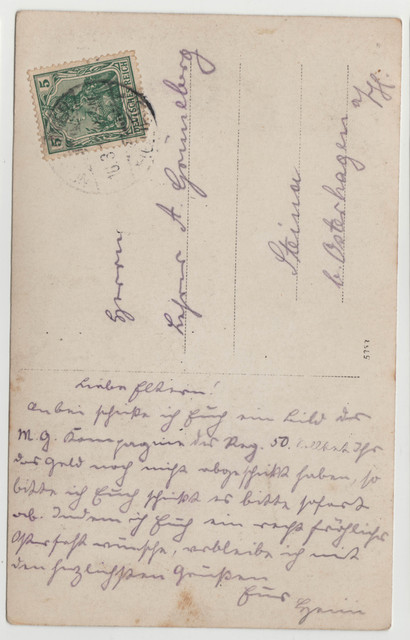 5 5
DEUTSCHES REICH
Herrn
Lehrer A Grüneberg
Steina
b. Osterhagen a/H.
Liebe Eltern!
Anbei schicke ich Euch ein Bild der
M. G. Kompagnie des Reg. 50. Ihr
das Geld noch nicht abgeschickt haben, so
bitte ich Euch schickt es bitte sofort
ab. Indem ich Euch ein recht fröhliches
Osterfest wünsche, verbleibe ich mit
den herzlichsten Grüßen
Euer